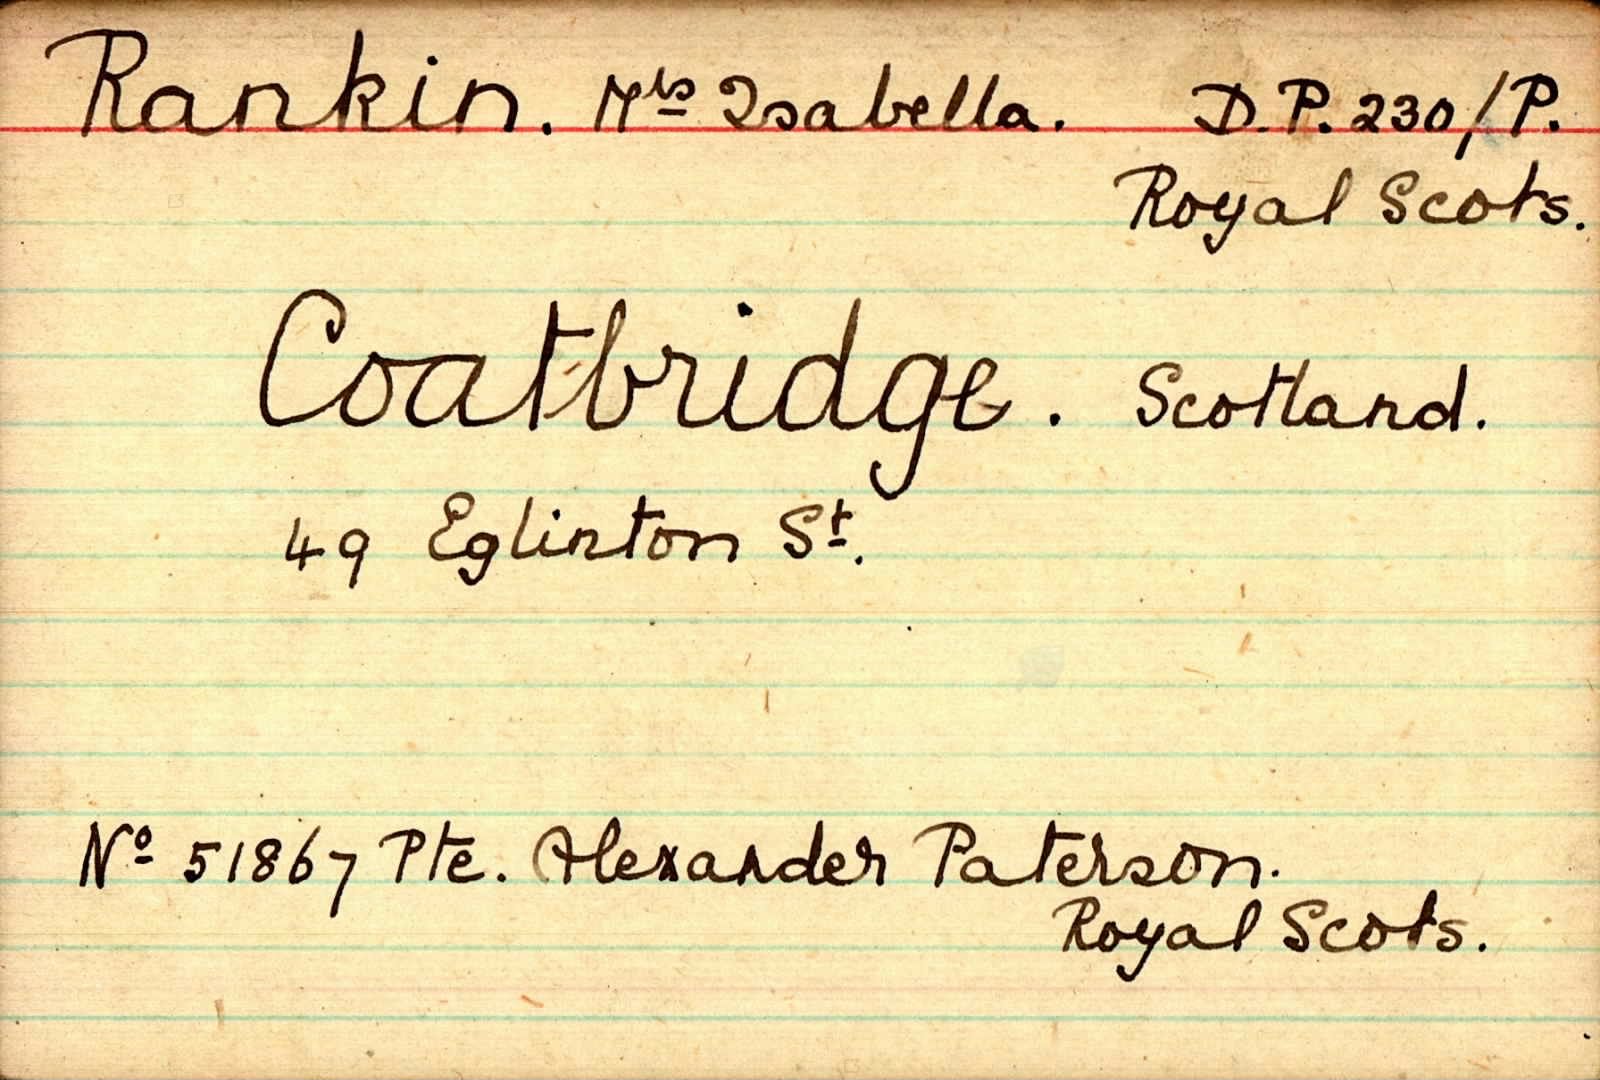 Rankin. Mrs Isabella. D.P. 230/P.
Royal Scots.
Coatbridge. Scotland.
49 Eglinton St.
No 51867 Pte. Alexander Paterson.
Royal Scots.